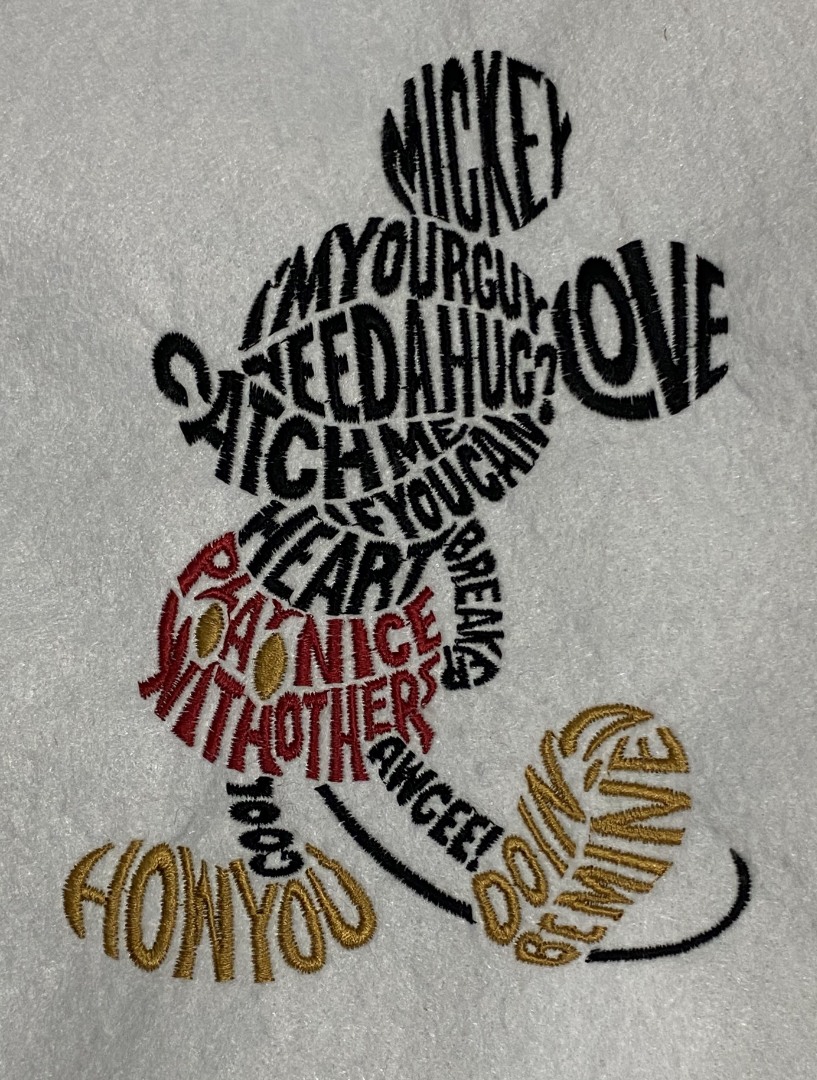 MICKEY
LOVE
I'M YOUR GUY
NEED A HUG?
CATCH ME
IF YOU CAN
HEART
BREAKS
PLAY NICE
WITH OTHERS
COOL
AW GEE!
HOW YOU
DOIN'?
BE MINE